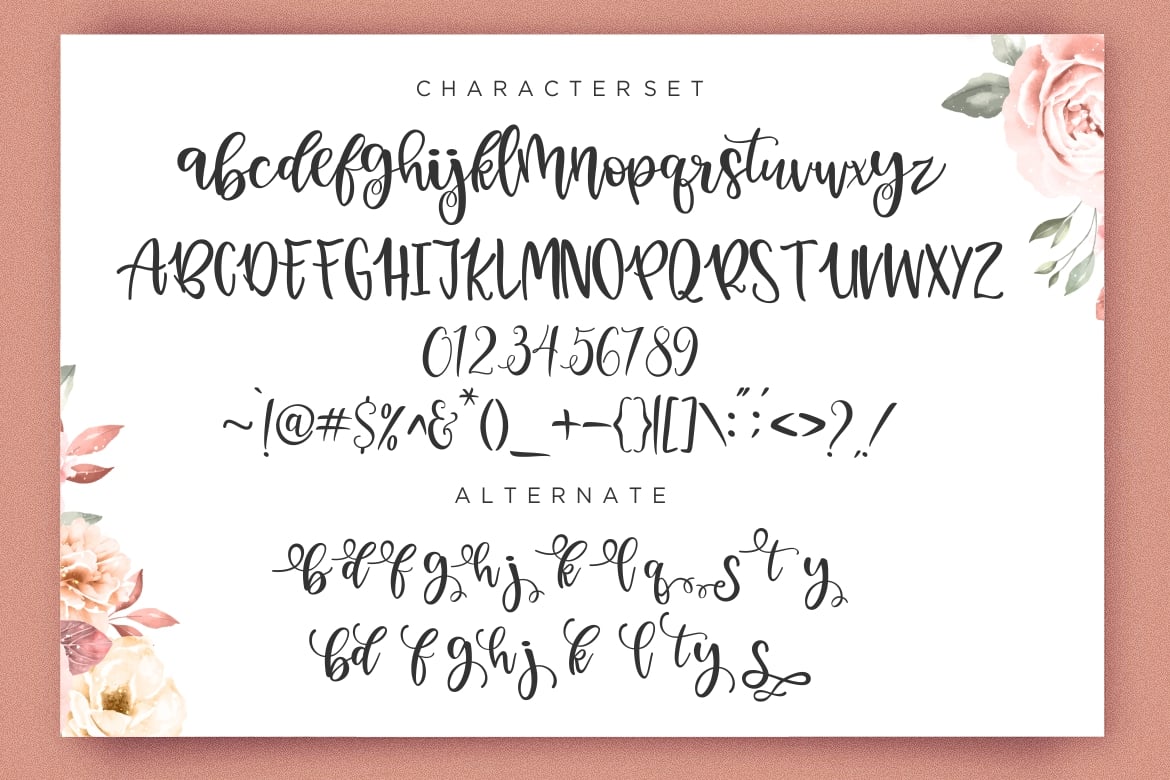 CHARACTERSET
abcdefghijklmnopqrstuvwxyz
ABCDEFGHIJKLMNOPQRSTUVWXYZ
0123456789
~`!@#$%^&*()_+-{}|[]\:";'<>?,./
ALTERNATE
bdfghjklqsty
bdfghjkltys